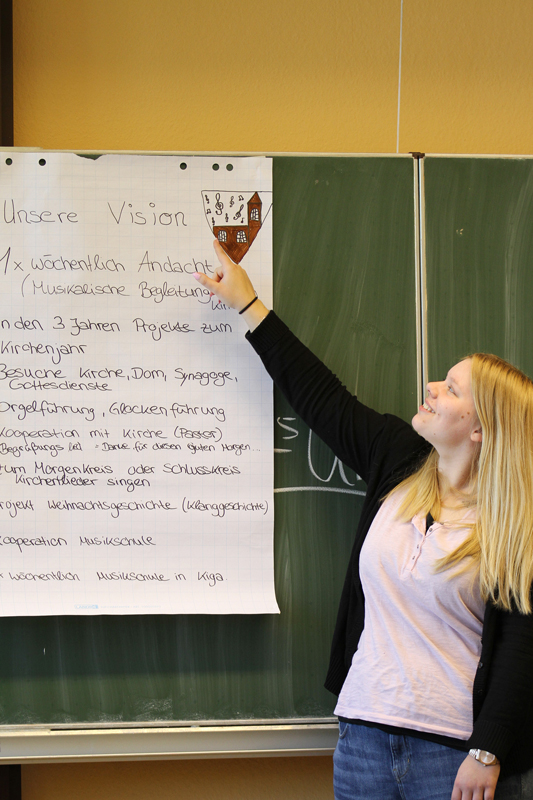 Unsere Vision
1x wöchentlich Andacht
(Musikalische Begleitung
Kin
n den 3 Jahren Projekte zum
Kirchenjahr
Besuche Kirche, Dom, Synagoge,
Gottesdienste
Orgelführung, Glockenführung
Kooperation mit Kirche (Pastor)
Begrüßungslied "Danke für diesen guten Morgen...
zum Morgenkreis oder Schlusskreis
Kirchenlieder singen
rojekt Weihnachtsgeschichte (Klanggeschichte)
Kooperation Musikschule
x wöchentlich Musikschule in Kiga